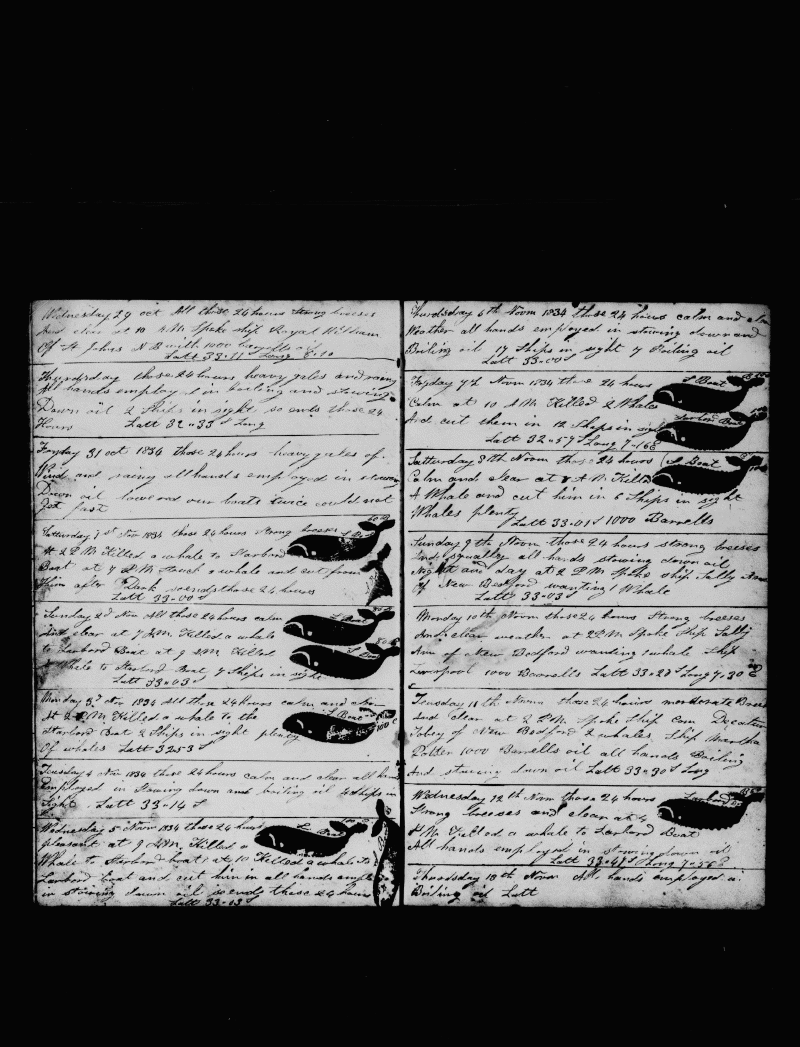 Wednesday 29 oct All these 24 hours Strong breeses
And clear at 10 AM Spoke ship Royal William
Of St Johns N B with 1000 barrells oil
Latt 33-11 S Long
these 24 hours heavy gales and rainy
All hands employed in boiling and stowing
Down oil 2 Ships in sight so ends these 24
Hours Latt 32-33 S Long
Fryday 31 oct 1834 these 24 hours heavy gales of
Wind and rainy all hands employed in stowing
Down oil lowered our boats twice could not
Get fast
Satturday 1st Nov 1834 these 24 hours Strong breeses
At 2 P.M. Killed a whale to Starbord
Boat at 4 P.M. Struck a whale and cut from
Him after Dark so ends those 24 hours
Latt 33-00 S
Sunday 2d Nov All these 24 hours calm
And clear at 7 A.M. Killed a whale
to Larbord Boat at 9 A.M. Killed
A Whale to Starbord Boat 4 Ships in sight
Latt 33-03 S
Monday 3d Nov 1834 All these 24 Hours calm and clear
At 2 P.M. Killed a whale to the
Starbord Boat 2 Ships in sight plenty
Of whales Latt 3253 S
Tuesday 4 Nov 1834 these 24 hours calm and clear all hands
Employed in Stowing down and boiling oil 4 Ships in
Sight Latt 33-14 S
Wednesday 5 Novm 1834 these 24 hours
pleasant at 9 A.M. Killed a
Whale to Starbord boat at 10 Killed a whale To
Larbord boat and cut him in all hands
in stowing down oil so ends these 24 hours
Latt 33-03
Thursdday 6th Novm 1834 these 24 hours calm and
Weather all hands employed in stowing down and
Boiling oil 17 Ships in sight 7 Boiling oil
Latt 33-00
Fryday 7th Novm 1834 these 24 hours
S Boat
Calm at 10 A.M. Killed 2 Whales
Larbord Boat
And cut them in 12 Ships in sight
Latt 32-57 S Long 7-16 E
Satturday 8th Novm these 24 hours
S Boat
Calm and clear at A.M. Killed
A Whale and cut him in 6 Ships in sight
Whales plenty
Latt 33-01 S 1000 Barrells
Sunday 9th Novm these 24 hours strong breeses
And squally all hands stowing down oil
Night and day at 2 P.M. Spoke ship Sally Ann
Of New Bedford wanting 1 Whale
Latt 33-03 S
Monday 10th Novm these 24 hours Strong breeses
And clear weather at 2 P.M. Spoke Ship Sally
Ann of New Bedford wanding 1 whale Ship
Liverpool 1000 Barrells Latt 33-23 S Long 7-30 E
Tuesday 11th Novm these 24 hours Breese
And Clear at 2 P.M. Spoke Ship Com Decatur
Tobey of New Bedford 2 whales, Ship Martha
1000 Barrells oil all hands Boiling
And stowing down oil Latt 33-30 S Long
Wednesday 12th Novm these 24 hours
Strong breeses and clear at 4
A.M. Killed a whale to Larbord Boat
All hands employed in stowing down oil
Latt 33-41 S Long 7-56 E
Thoursday 13th Novm All hands employed in
Boiling oil Latt